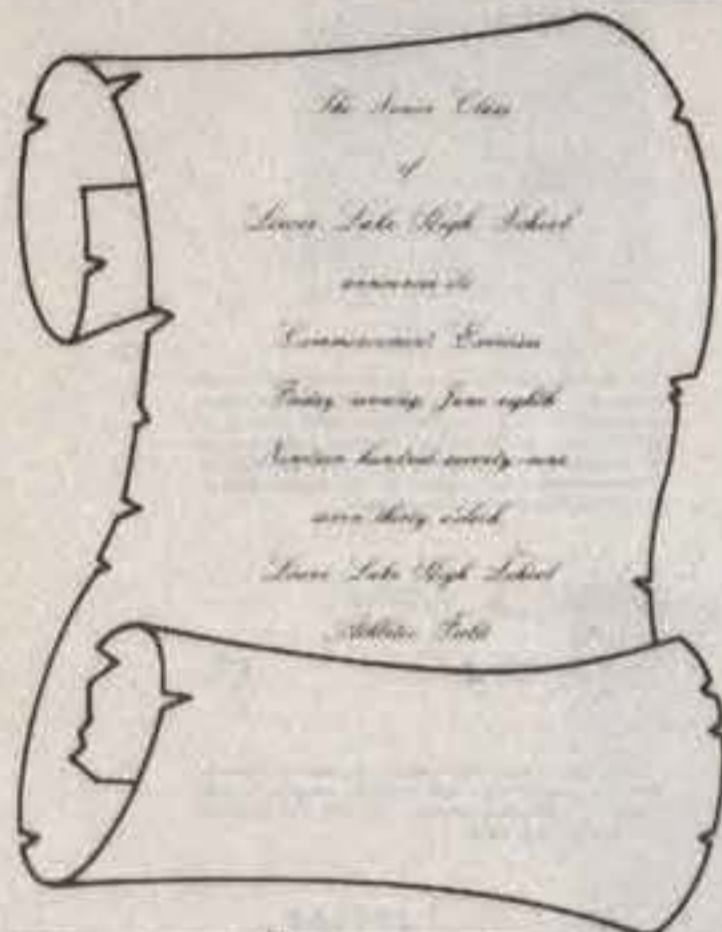 The Senior Class
of
Lower Lake High School
announces its
Commencement Exercises
Friday evening, June eighth
Nineteen hundred seventy-nine
seven thirty o'clock
Lower Lake High School
Athletic Field